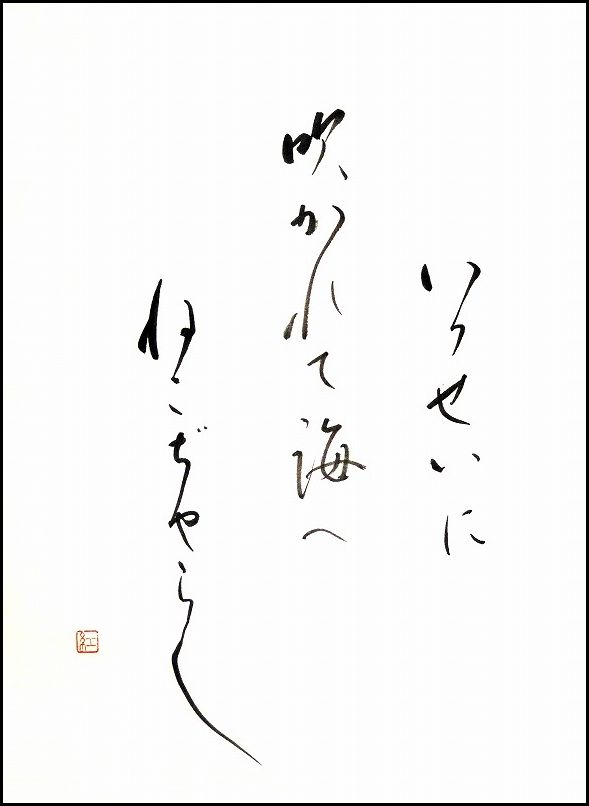 いつせいに
吹かれて海へ
ねこぢやらし
紅